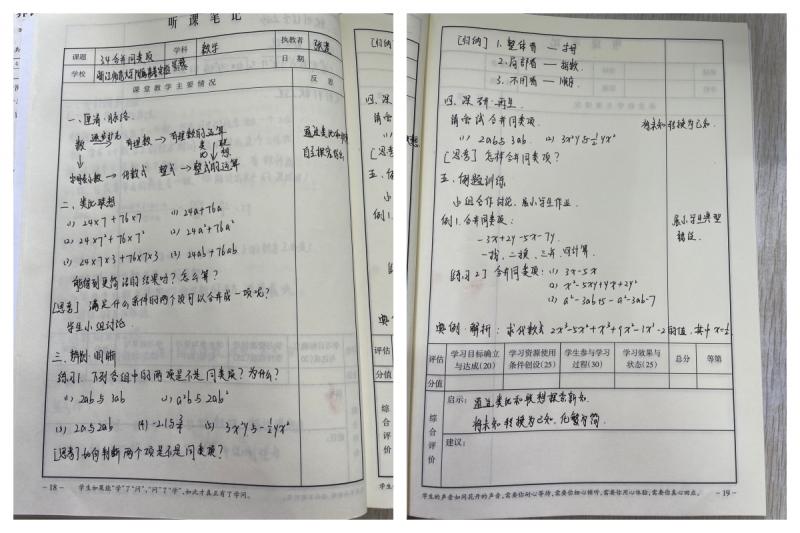 听课笔记
课题 3.4合并同类项 学科 数学 执教者
学校 日期
课堂教学主要情况 反思
一、厘清·脉络
数 → 有理数 → 有理数的运算
类比 联想
→ 代数式 整式 → 整式的运算
通过类比
自主探究
二、类比联想
(1) 24×7+76×7 (1) 24a+76a
(2) 24×7²+76×7² (2) 24a²+76a²
(3) 24×7×3+76×7×3 (3) 24ab+76ab
能得到更简洁的结果吗？怎么算？
[思考] 满足什么条件的两个项可以合并成一项呢？
学生小组讨论
三、辨别·明晰
练习1. 下列各组中的两项是不是同类项？为什么？
(1) 2ab与3ab (2) a²b与2ab²
(3) 2a与2ab (4) -2.1与3/2 (5) 3x²y与-½yx²
[思考] 如何判断两个项是不是同类项？
-18- 学生如果能“学”了“问”，“问”了“学”，如此才真正有了学问。
[归纳] 1. 整体看 —
2. 局部看 — 指数
3. 不用看 — 顺序
四、深研·再生
请尝试合并同类项
(1) 2ab与3ab (2) 3x²y与-½yx²
将未知转换为已知
[思考] 怎样合并同类项？
五、例题训练
小组合作讨论，展示学生作业
例1. 合并同类项：
-3x+2y-5x-7y
一找、二换、三并、四计算
展示学生典型
错误
[练习2] 合并同类项：(1) 3x-5x
(2) x²-5xy+yx+2y²
(3) a²-3ab+5-a²-3ab-7
典例·解析：求代数式 2x³-5x²+x³+9x²-1x³-2的值，其中x=½
评估 学习目标确立与达成(20) 学习资源使用条件创设(25) 学生参与学习过程(30) 学习效果与状态(25) 总分 等第
分值
综合评价
启示：通过类比和联想探索新知
将未知转换为已知，化繁为简
建议：
学生的声音如同花开的声音，需要你耐心等待，需要你细心倾听，需要你用心体验，需要你真心回应。 -19-